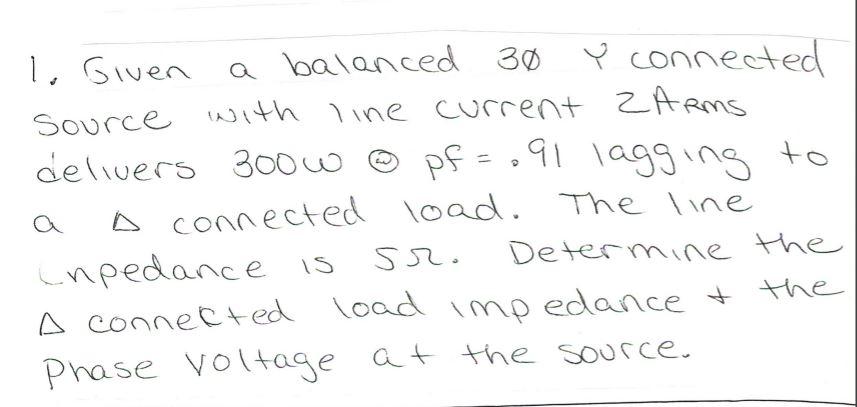 1. Given a balanced 3Ø Y connected
Source with line current 2ARMS
delivers 300W @ pf = .91 lagging to
a Δ connected load. The line
inpedance is 5Ω. Determine the
Δ connected load impedance + the
Phase Voltage at the source.